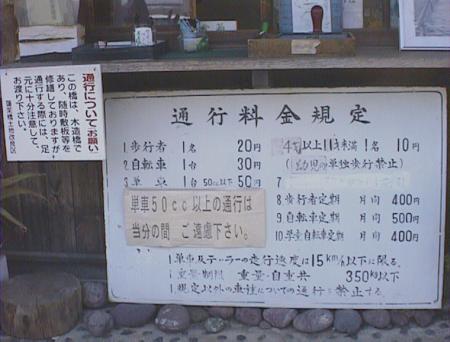 通行についてお願い
この橋は、木造橋で
あり、随時敷板等を
修繕しておりますが、
通行する際には、足
元に十分注意して、
お渡り下さい。
通行料金規定
1 歩行者 1名 20円
2 自転車 1台 30円
3 単車 1台 50cc以下 50円
単車50cc以上の通行は
当分の間 ご遠慮下さい。
4才以上11才未満 1名 10円
(幼児の単独歩行禁止)
7
8 歩行者定期 月間 400円
9 自転車定期 月間 500円
10 学童自転車定期 月間 400円
1 単車及テーラーの走行速度は15km/以下に限る。
1 重量制限 重量・自重共 350kg以下
1 規定以外の車種についての通行を禁止する。